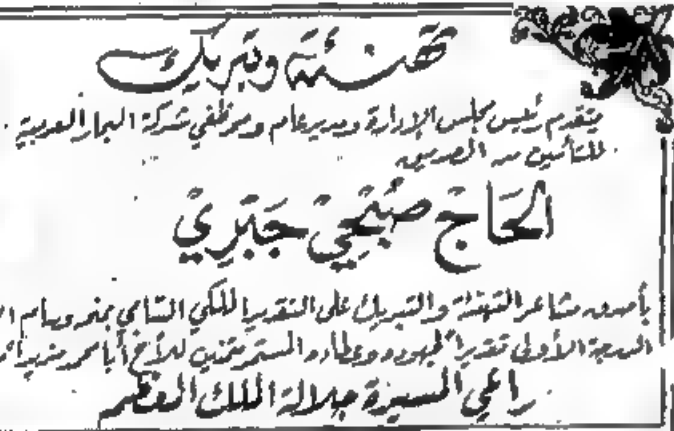 تهنئة وتبريك
يتقدم رئيس مجلس الإدارة ومدير عام وموظفي شركة البحار العربية
للتأمين من الصديق
الحَاج صُبْحِيْ جَبْرِيْ
بأصدق مشاعر التهنئة والتبريك على التقدير الملكي السامي بمنحه وسام
الدرجة الأولى تقديراً لجهوده وعطاءه المستمر متمنين للأخ أبا سمير مزيداً
راعي المسيرة جلالة الملك المعظم